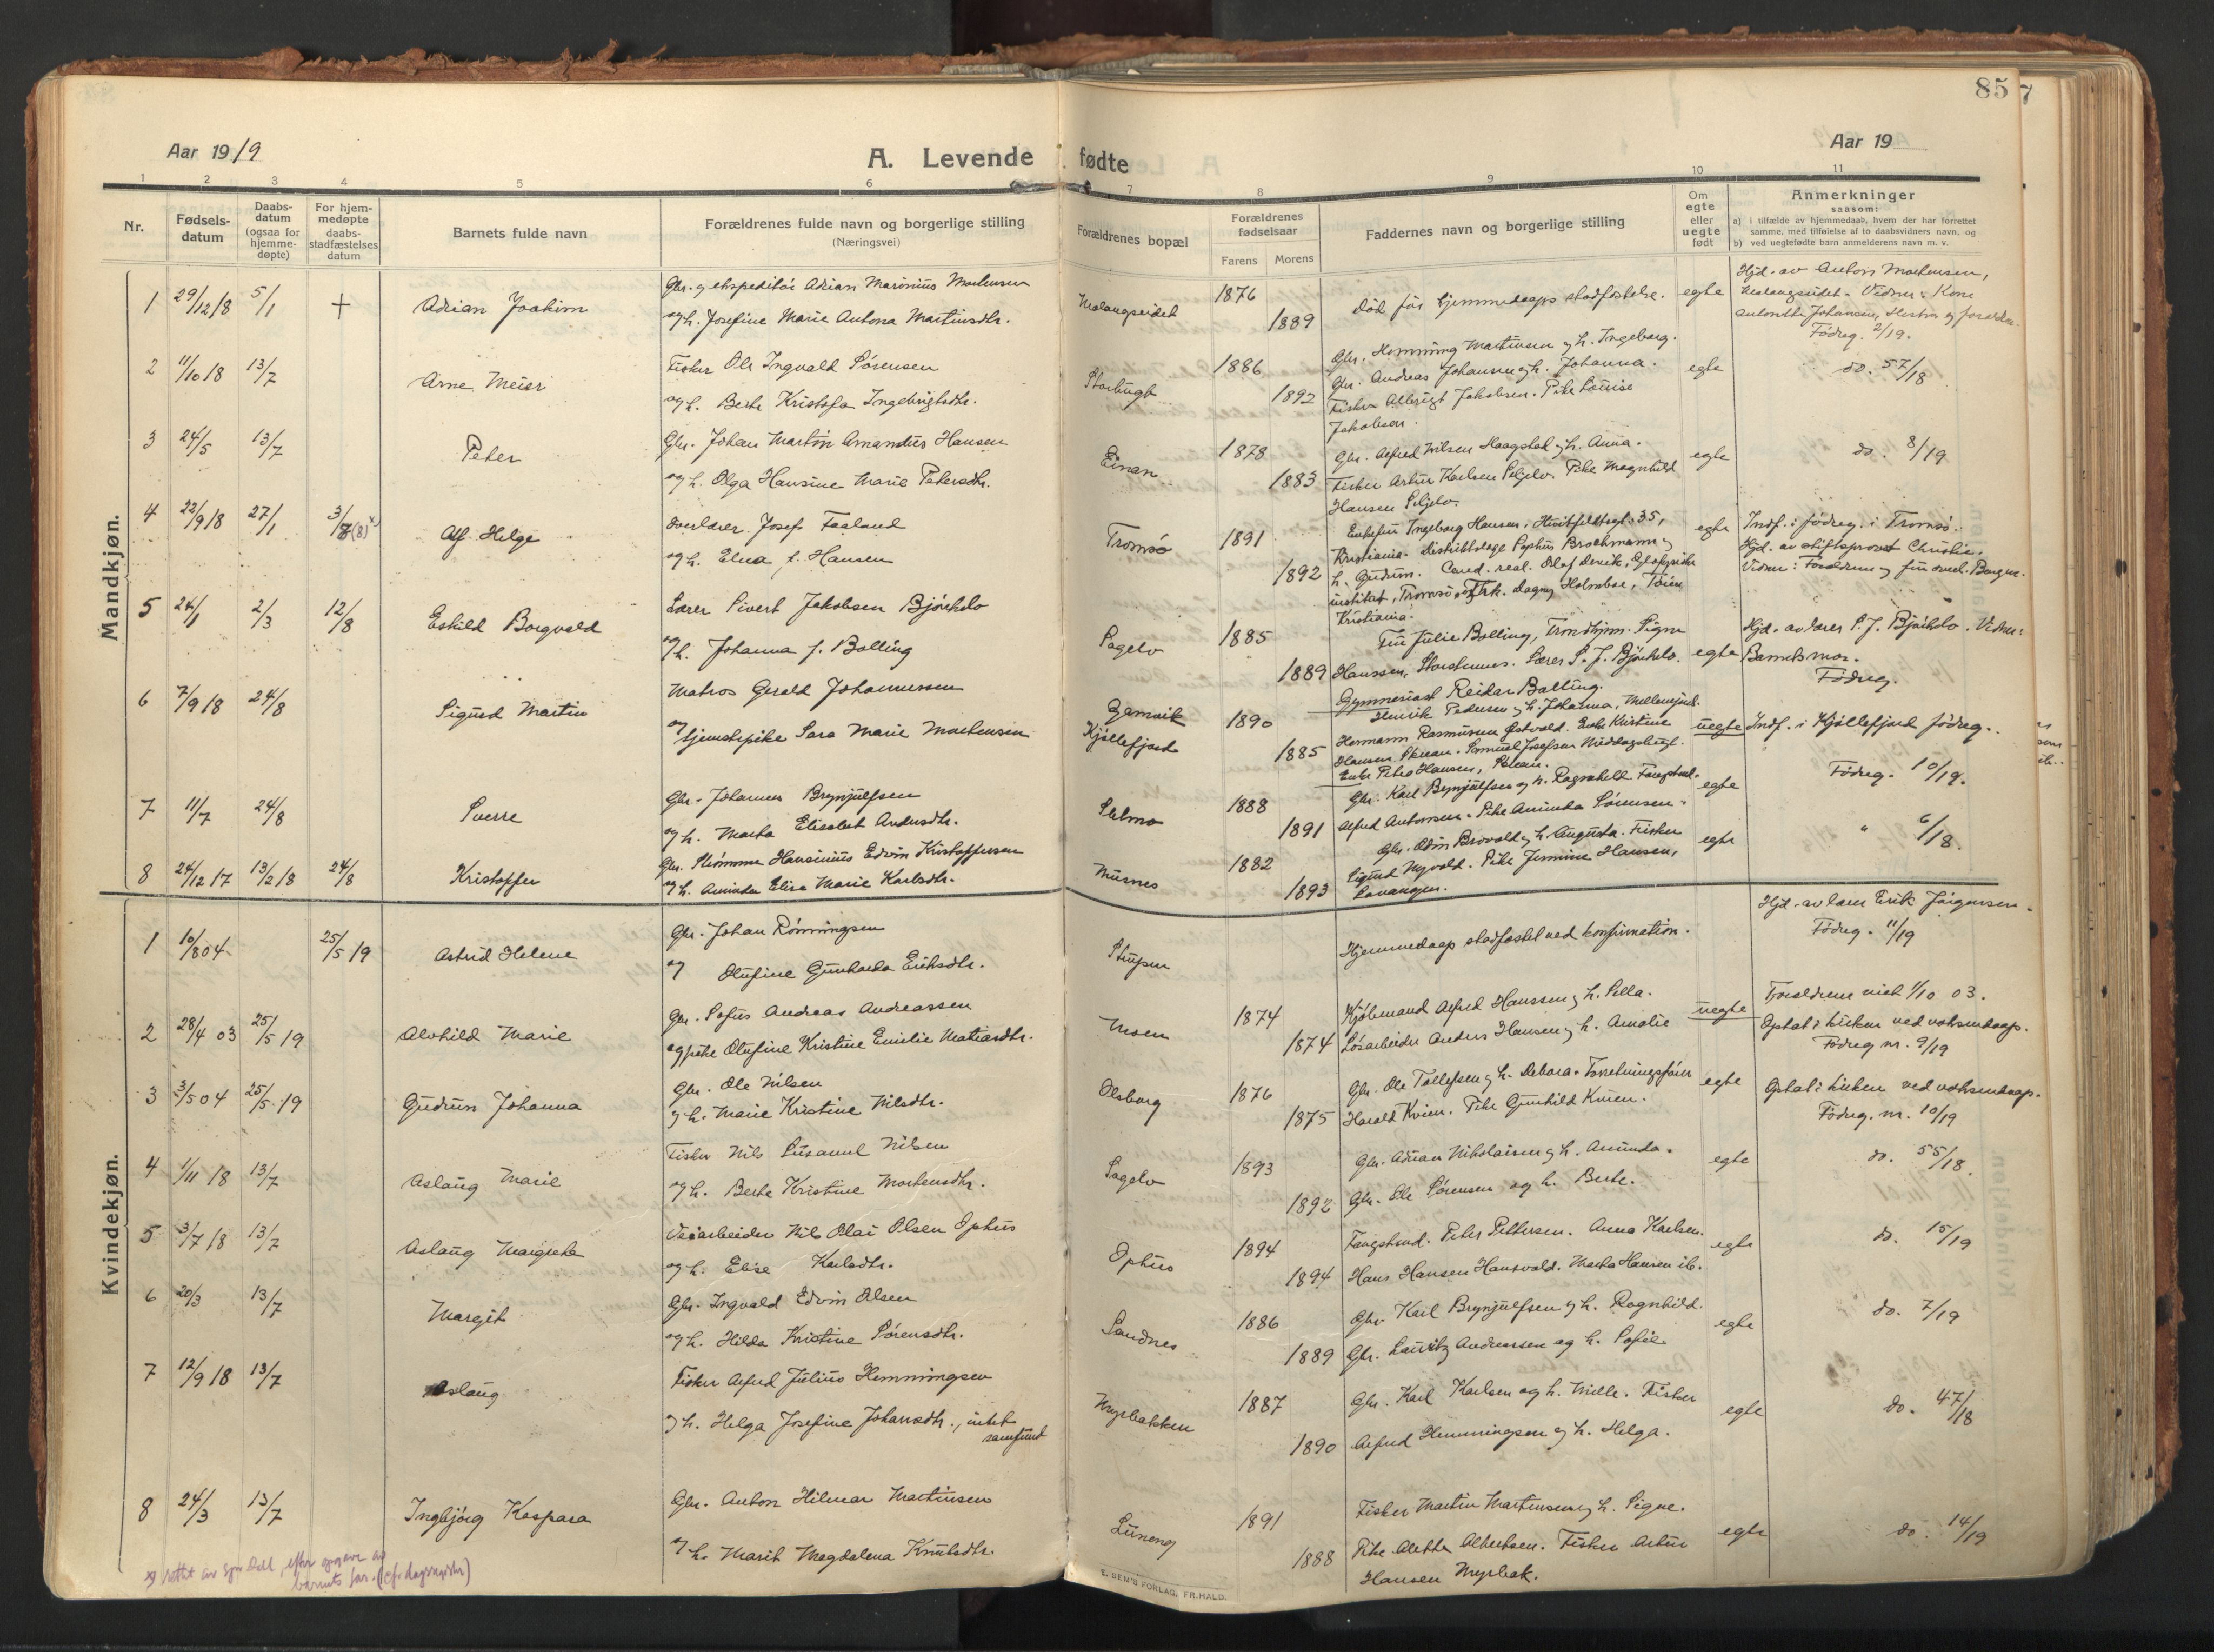 85
7
Aar 1919
A. Levende fødte
Aar 19
1 2 3 4 5 6 7 8 9 10 11
Nr.
Fødselsdatum
Daabsdatum (ogsaa for hjemmedøpte)
For hjemmedøpte daabsstadfæstelses datum
Barnets fulde navn
Forældrenes fulde navn og borgerlige stilling
(Næringsvei)
Forældrenes bopæl
Forældrenes fødselsaar
Farens Morens
Faddernes navn og borgerlige stilling
Om egte eller uegte født
Anmerkninger
saasom:
a) i tilfælde av hjemmedaab, hvem der har forrettet
samme, med tilføielse af to daabsvidners navn, og
b) ved uegtefødte barn anmelderens navn m. v.
Mandkjøn.
1 29/12 18 5/1 + Adrian Joakim
Gbr. og ekspeditør Adrian Marinius Mortensen
og h. Josefine Marie Antona Martinsdtr.
Malangseidet 1876 1889
Død før hjemmedaaps stadfæstelse. egte
Hjd. av Anton Mortensen,
Malangseidet. Vidner: Kone
Fødreg. 2/19.
2 11/10 18 13/7 Arne Meier
Fisker Ole Ingvald Sørensen
og h. Berte Kristofa Ingebrigtsdtr.
Storbugt 1886 1892
Gbr. Hemming Martinsen og h. Ingeborg.
Gbr. Andreas Johansen og h. Johanna.
Fisker Albrigt Jakobsen. Pike Louise
Jakobsen.
egte do. 57/18
3 24/5 13/7 Peter
Gbr. Johan Martin Amandus Hansen
og h. Olga Hansine Marie Petersdtr.
Einan 1878 1883
Gbr. Alfred Nilsen Haagstad og h. Anna.
Fisker Artur Karlsen Seljelv. Pike Magnhild
Hansen Seljelv.
egte do. 8/19
4 22/9 18 27/1 3/8 (8) x) Alf Helge
Overlærer Josef Faaland
og h. Elna f. Hansen
Tromsø 1891 1892
Enkefru Ingeborg Hansen, Huitfeldtsgt. 35,
Kristiania. Distriktslæge Sophus Brochmann og
h. Gudrun. Cand. real. Olaf Devik, Geofysiske
institut, Tromsø. Frk. Dagny Holmboe, Tøien
Kristiania.
egte Indf. i fødreg. i Tromsø.
Hjd. av stiftsprovst Christie.
Vidner: Forældrene og
5 24/1 2/3 12/8 Eskild Borgvald
Lærer Sivert Jakobsen Bjørkelo
og h. Johanna f. Balling
Sagelv 1885 1889
Fru Julie Balling, Trondhjem. Signe
Hanssen, Storstennes. Lærer S. J. Bjørkelo.
Gymnasiast Reidar Balling.
egte Hjd. av lærer S. J. Bjørkelo. Vidner:
Barnets mor.
Fødreg.
6 7/9 18 24/8 Sigurd Martin
Matros Gerald Johannessen
og tjenstepike Sara Marie Mortensen
Gamvik
Kjøllefjord 1890 1885
Henrik Pedersen og h. Johanna, Mellemfjord.
Hermann Rasmussen Østvold. Enke Kristine
Hansen Skutan. Samuel Josefsen Middagsbugt.
Enke Petra Hansen,
uegte Indf. i Kjøllefjord fødreg.
7 11/7 24/8 Sverre
Gbr. Johannes Brynjulfsen
og h. Marta Elisabet Andersdtr.
Selmo 1888 1891
Gbr. Karl Brynjulfsen og h. Ragnhild.
Alfred Antonsen. Pike Aminda Sørensen.
egte Fødreg. 10/19.
8 24/12 17 13/2 18 24/8 Kristoffer
Gbr. Strømme Hansinius Edvin Kristoffersen
og h. Aminda Elise Marie Karlsdtr.
Musnes 1882 1893
Gbr. Odin Brovold og h. Augusta. Fisker
Sigurd Nyvold. Pike Jermine Hansen,
Lavangen.
egte " 6/18.
Kvindekjøn.
1 10/8 04 25/5 19 Astrid Helene
Gbr. Johan Rønningsen
og Olufine Gunharda Eriksdtr.
Stupen
Hjemmedaap stadfæstet ved konfirmation.
Hjd. av lærer Erik Jørgensen.
Fødreg. 11/19
2 28/4 03 25/5 19 Alvhild Marie
Gbr. Sofus Andreas Andreassen
og pike Olufine Kristine Emilie Matiasdtr.
Moen 1874 1874
Kjøbmand Alfred Hanssen og h. Pella.
Løsarbeider Anders Hansen og h. Amalie
uegte Forældrene viet 1/10 03.
Optat i kirken ved voksendaap.
Fødreg nr. 9/19
3 3/5 04 25/5 19 Gudrun Johanna
Gbr. Ole Nilsen
og h. Marie Kristine Nilsdtr.
Olsborg 1876 1875
Gbr. Ole Tollefsen og h. Debora. Forretningsfører
Harald Kvien. Pike Gunhild Kvien.
egte Optat i kirken ved voksendaap.
Fødreg. nr. 10/19
4 1/11 18 13/7 Aslaug Marie
Fisker Nils Susanul Nilsen
og h. Berte Kristine Mortensdtr.
Sagelv 1893 1892
Gbr. Adrian Nikolaisen og h. Aminda.
Gbr. Ole Sørensen og h. Berte.
egte do. 55/18.
5 3/7 18 13/7 Aslaug Margrete
Veiarbeider Nils Olai Olsen Ophus
og h. Elise Karlsdtr.
Ophus 1894 1894
Fangstmd. Peter Pettersen. Anna Karlsen.
Hans Hansen Hansvold. Marta Hansen ib.
egte do. 15/19
6 20/3 13/7 Margit
Gbr. Ingvald Edvin Olsen
og h. Hilda Kristine Sørensdtr.
Sandnes 1886 1889
Gbr. Karl Brynjulfsen og h. Ragnhild.
Gbr. Lauritz Andreassen og h. Sofie.
egte do. 7/19
7 12/9 18 13/7 Aslaug
Fisker Alfred Julius Hemmingsen
og h. Helga Josefine Johansdtr., intet
samfund
Myrbakken 1887 1890
Gbr. Karl Karlsen og h. Mille. Fisker
Alfred Hemmingsen og h. Helga.
egte do. 47/18
8 24/3 13/7 Ingbjørg Kaspara
Gbr. Anton Hilmar Martinsen
og h. Marit Magdalena Knutsdtr.
Luneng 1891 1888
Fisker Martin Martinsen og h. Signe.
Pike Alette Albertsen. Fisker Artur
Hansen Myrbak.
egte do. 14/19
x) rettet av Spr. Dahl, efter opgave av
barnets far. (cfr. dagregister)
E. SEM'S FORLAG, FR.HALD.